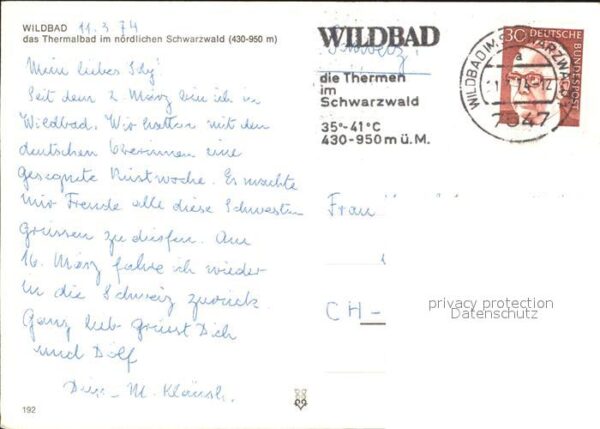 WILDBAD 11.3.74
das Thermalbad im nördlichen Schwarzwald (430-950 m)
Mein liebes
Seit dem 2. März bin ich in
Wildbad. Wir hatten mit den
deutschen Oberinnen eine
gesegnete Rüstwoche. Es machte
mir Freude alle diese Schwestern
grüssen zu dürfen. Am
16. März fahre ich wieder
in die Schweiz zurück.
Ganz lieb grüsst Dich
und Dölf
Deine M.
192
WILDBAD
die Thermen
im
Schwarzwald
35°-41°C
430-950 m ü. M.
30 DEUTSCHE BUNDESPOST
WILDBAD IM SCHWARZWALD
a
7547
Frau
CH-
privacy protection
Datenschutz